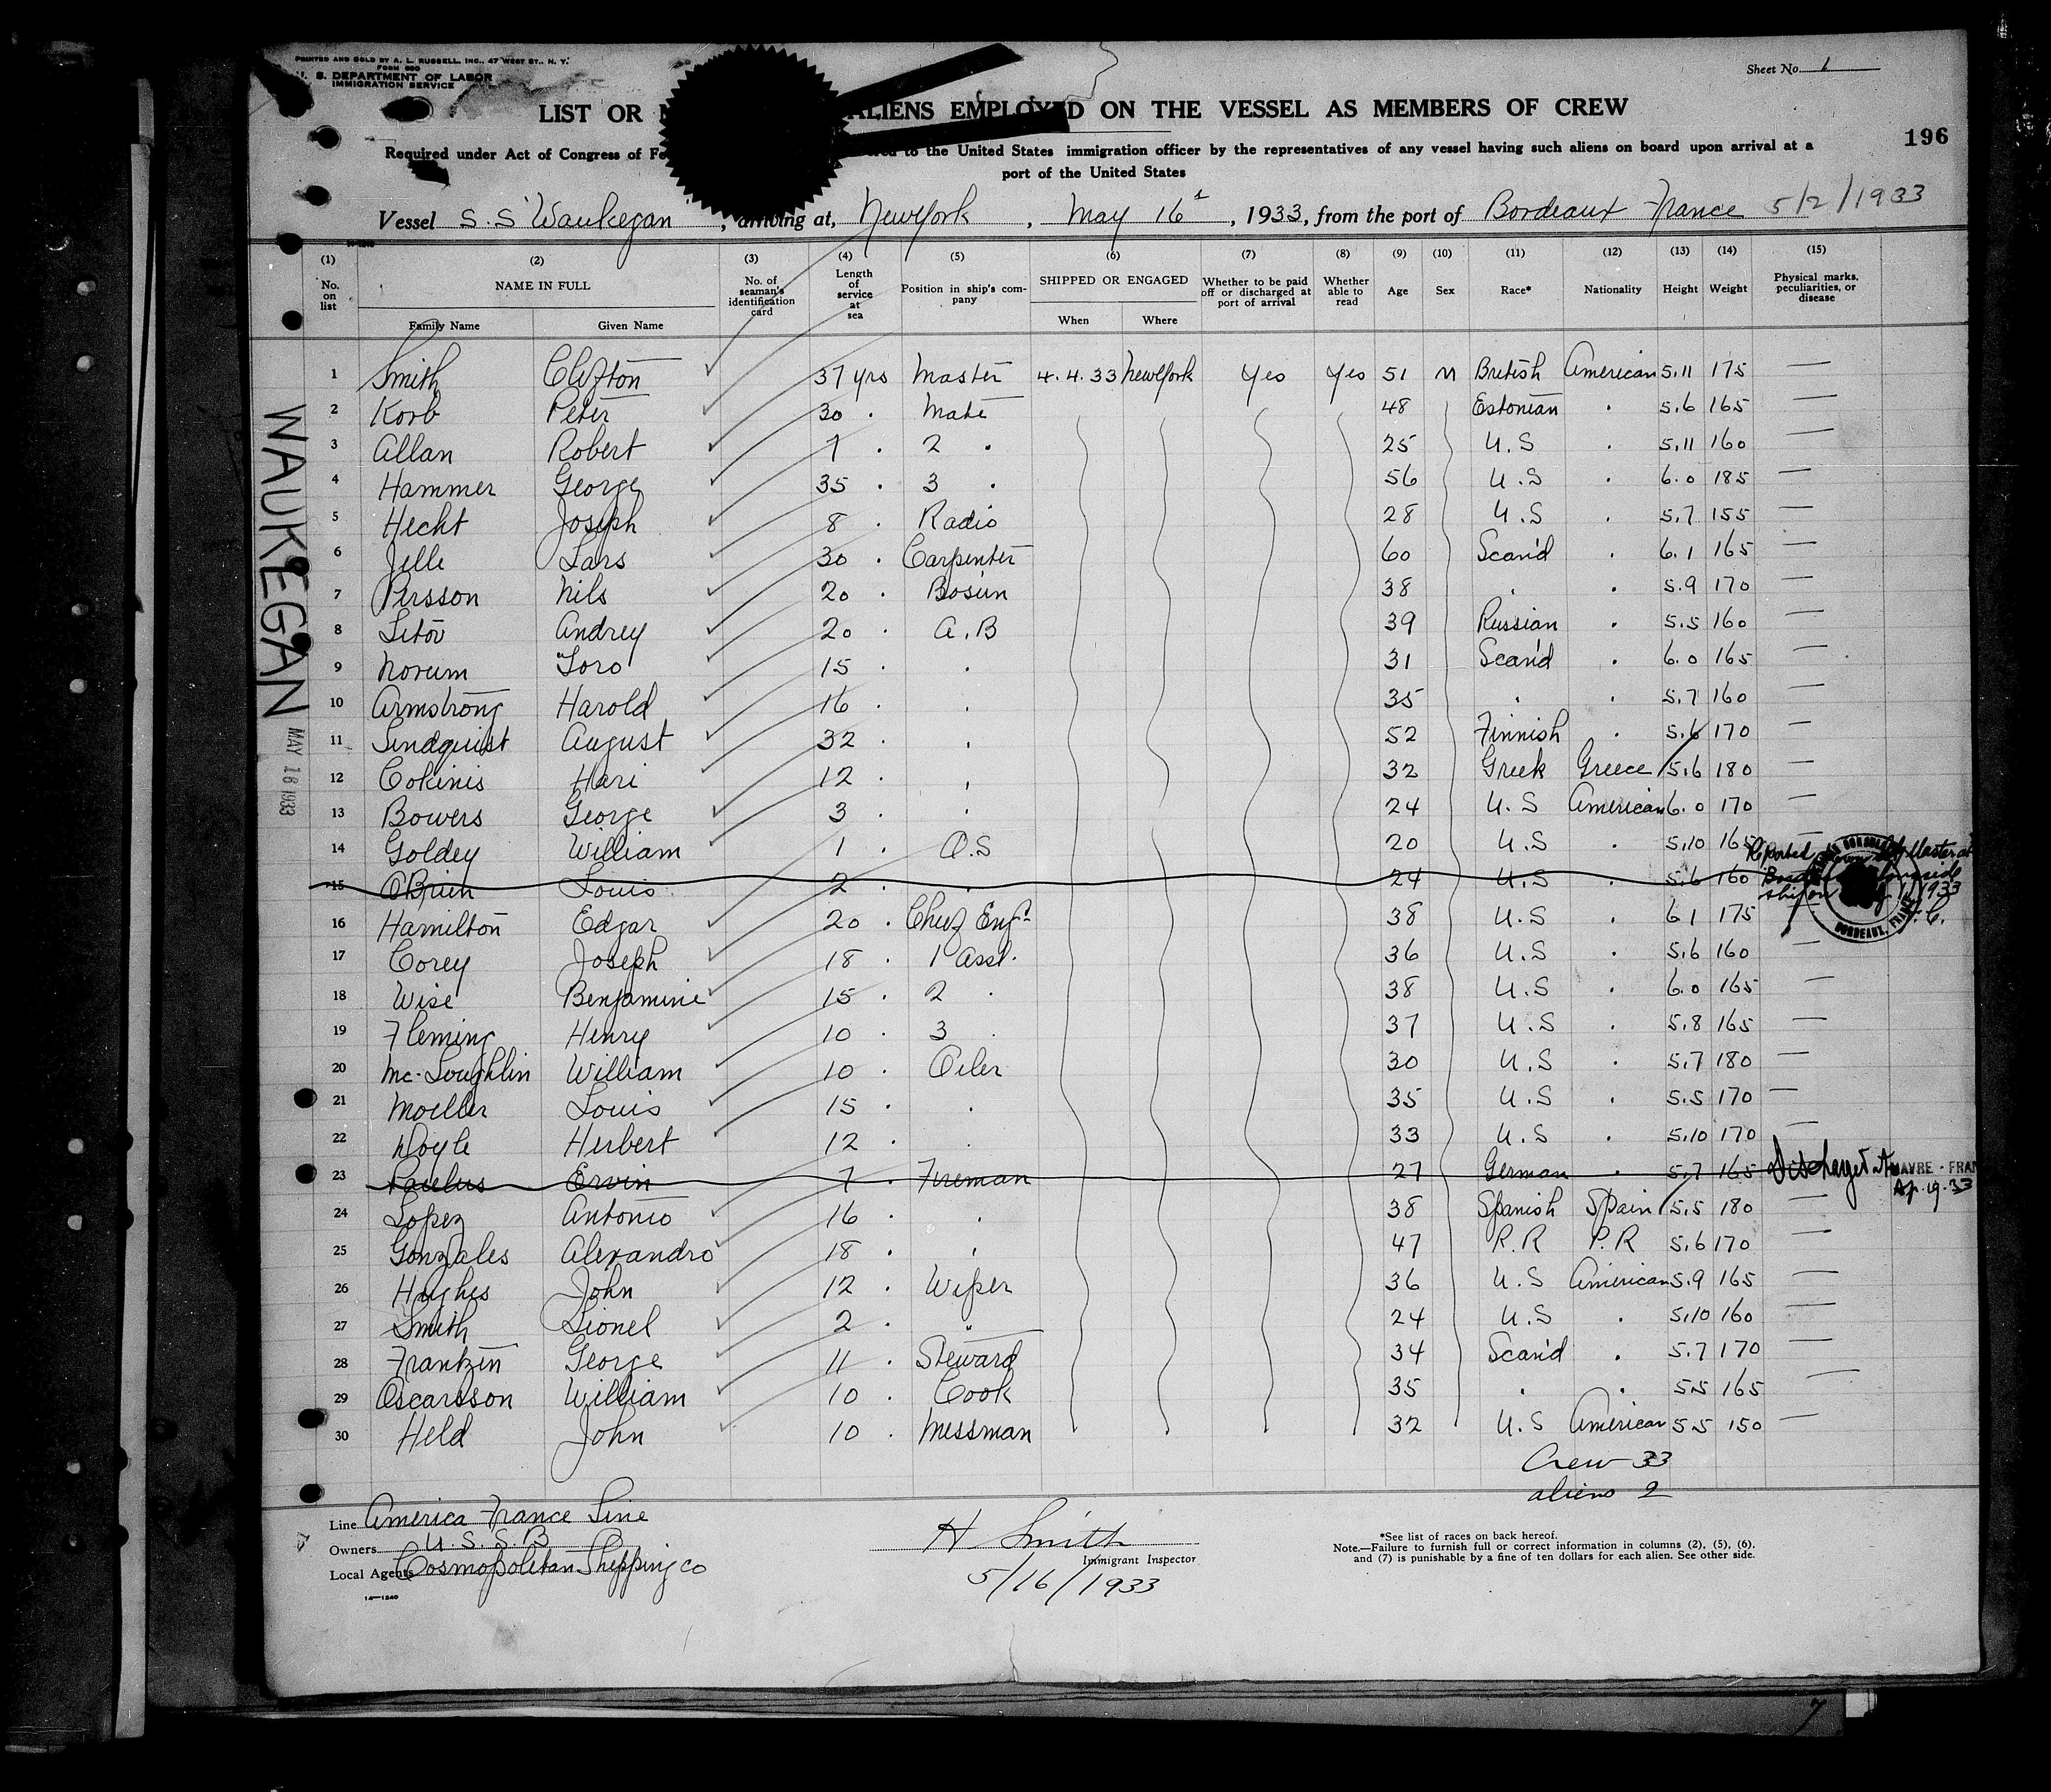 PRINTED AND SOLD BY A. L. RUSSELL, INC., 47 WEST ST., N. Y.
FORM 680
U. S. DEPARTMENT OF LABOR
IMMIGRATION SERVICE
Sheet No. 1
LIST OR ALIENS EMPLOYED ON THE VESSEL AS MEMBERS OF CREW
196
Required under Act of Congress of to the United States immigration officer by the representatives of any vessel having such aliens on board upon arrival at a
port of the United States
Vessel S.S Waukegan, arriving at, New York, May 16, 1933, from the port of Bordeaux France 5/2/1933
(1) (2) (3) (4) (5) (6) (7) (8) (9) (10) (11) (12) (13) (14) (15)
No. on list NAME IN FULL No. of seaman's identification card Length of service at sea Position in ship's company SHIPPED OR ENGAGED Whether to be paid off or discharged at port of arrival Whether able to read Age Sex Race* Nationality Height Weight Physical marks, peculiarities, or disease
Family Name Given Name When Where
1 Smith Clifton 37 yrs Master 4.4.33 New York Yes Yes 51 M British American 5.11 175 —
2 Korb Peter 30 . Mate 48 Estonian . 5.6 165 —
3 Allan Robert 7 . 2 . 25 U.S . 5.11 160 —
4 Hammer George 35 . 3 . 56 U.S . 6.0 185 —
5 Hecht Joseph 8 . Radio 28 U.S . 5.7 155 —
6 Jelle Lars 30 . Carpenter 60 Scan'd . 6.1 165 —
7 Persson Nils 20 . Bosun 38 . . 5.9 170 —
8 Litov Andrey 20 . A.B 39 Russian . 5.5 160 —
9 Norum Toro 15 . . 31 Scan'd . 6.0 165 —
10 Armstrong Harold 16 . . 35 . . 5.7 160 —
11 Lindquist August 32 . . 52 Finnish . 5.6 170 —
12 Cokinis Hari 12 . . 32 Greek Greece 5.6 180 —
13 Bowers George 3 . . 24 U.S American 6.0 170 —
14 Goldey William 1 . O.S 20 U.S . 5.10 165 —
15 O'Brien Louis 2 . . 24 U.S . 5.6 160 Reported by Master at ship on 1933
BORDEAUX, FRANCE
16 Hamilton Edgar 20 . Chief Engr 38 U.S . 6.1 175
17 Corey Joseph 18 . 1 Asst. 36 U.S . 5.6 160 —
18 Wise Benjamine 15 . 2 . 38 U.S . 6.0 165 —
19 Fleming Henry 10 3 . 37 U.S . 5.8 165 —
20 Mc.Loughlin William 10 . Oiler 30 U.S . 5.7 180 —
21 Moeller Louis 15 . . 35 U.S . 5.5 170 —
22 Doyle Herbert 12 . . 33 U.S . 5.10 170 —
23 Paulus Ervin 7 . Fireman 27 German . 5.7 165 Discharged at HAVRE - FRAN Ap. 19. 33
24 Lopez Antonio 16 . . 38 Spanish Spain 5.5 180 —
25 Gonzales Alexandro 18 . . 47 P.R P.R 5.6 170 —
26 Hughes John 12 . Wiper 36 U.S American 5.9 165 —
27 Smith Lionel 2 . " 24 U.S . 5.10 160 —
28 Frantzen George 11 . Steward 34 Scan'd . 5.7 170 —
29 Oscarsson William 10 . Cook 35 . . 5.5 165 —
30 Held John 10 . Messman 32 U.S American 5.5 150 —
Crew 33
aliens 2
WAUKEGAN
MAY 16 1933
Line America France Line
Owners U.S.S.B
Local Agents Cosmopolitan Shipping co
14—1240
H Smith
Immigrant Inspector
5/16/1933
*See list of races on back hereof.
Note.—Failure to furnish full or correct information in columns (2), (5), (6),
and (7) is punishable by a fine of ten dollars for each alien. See other side.
7